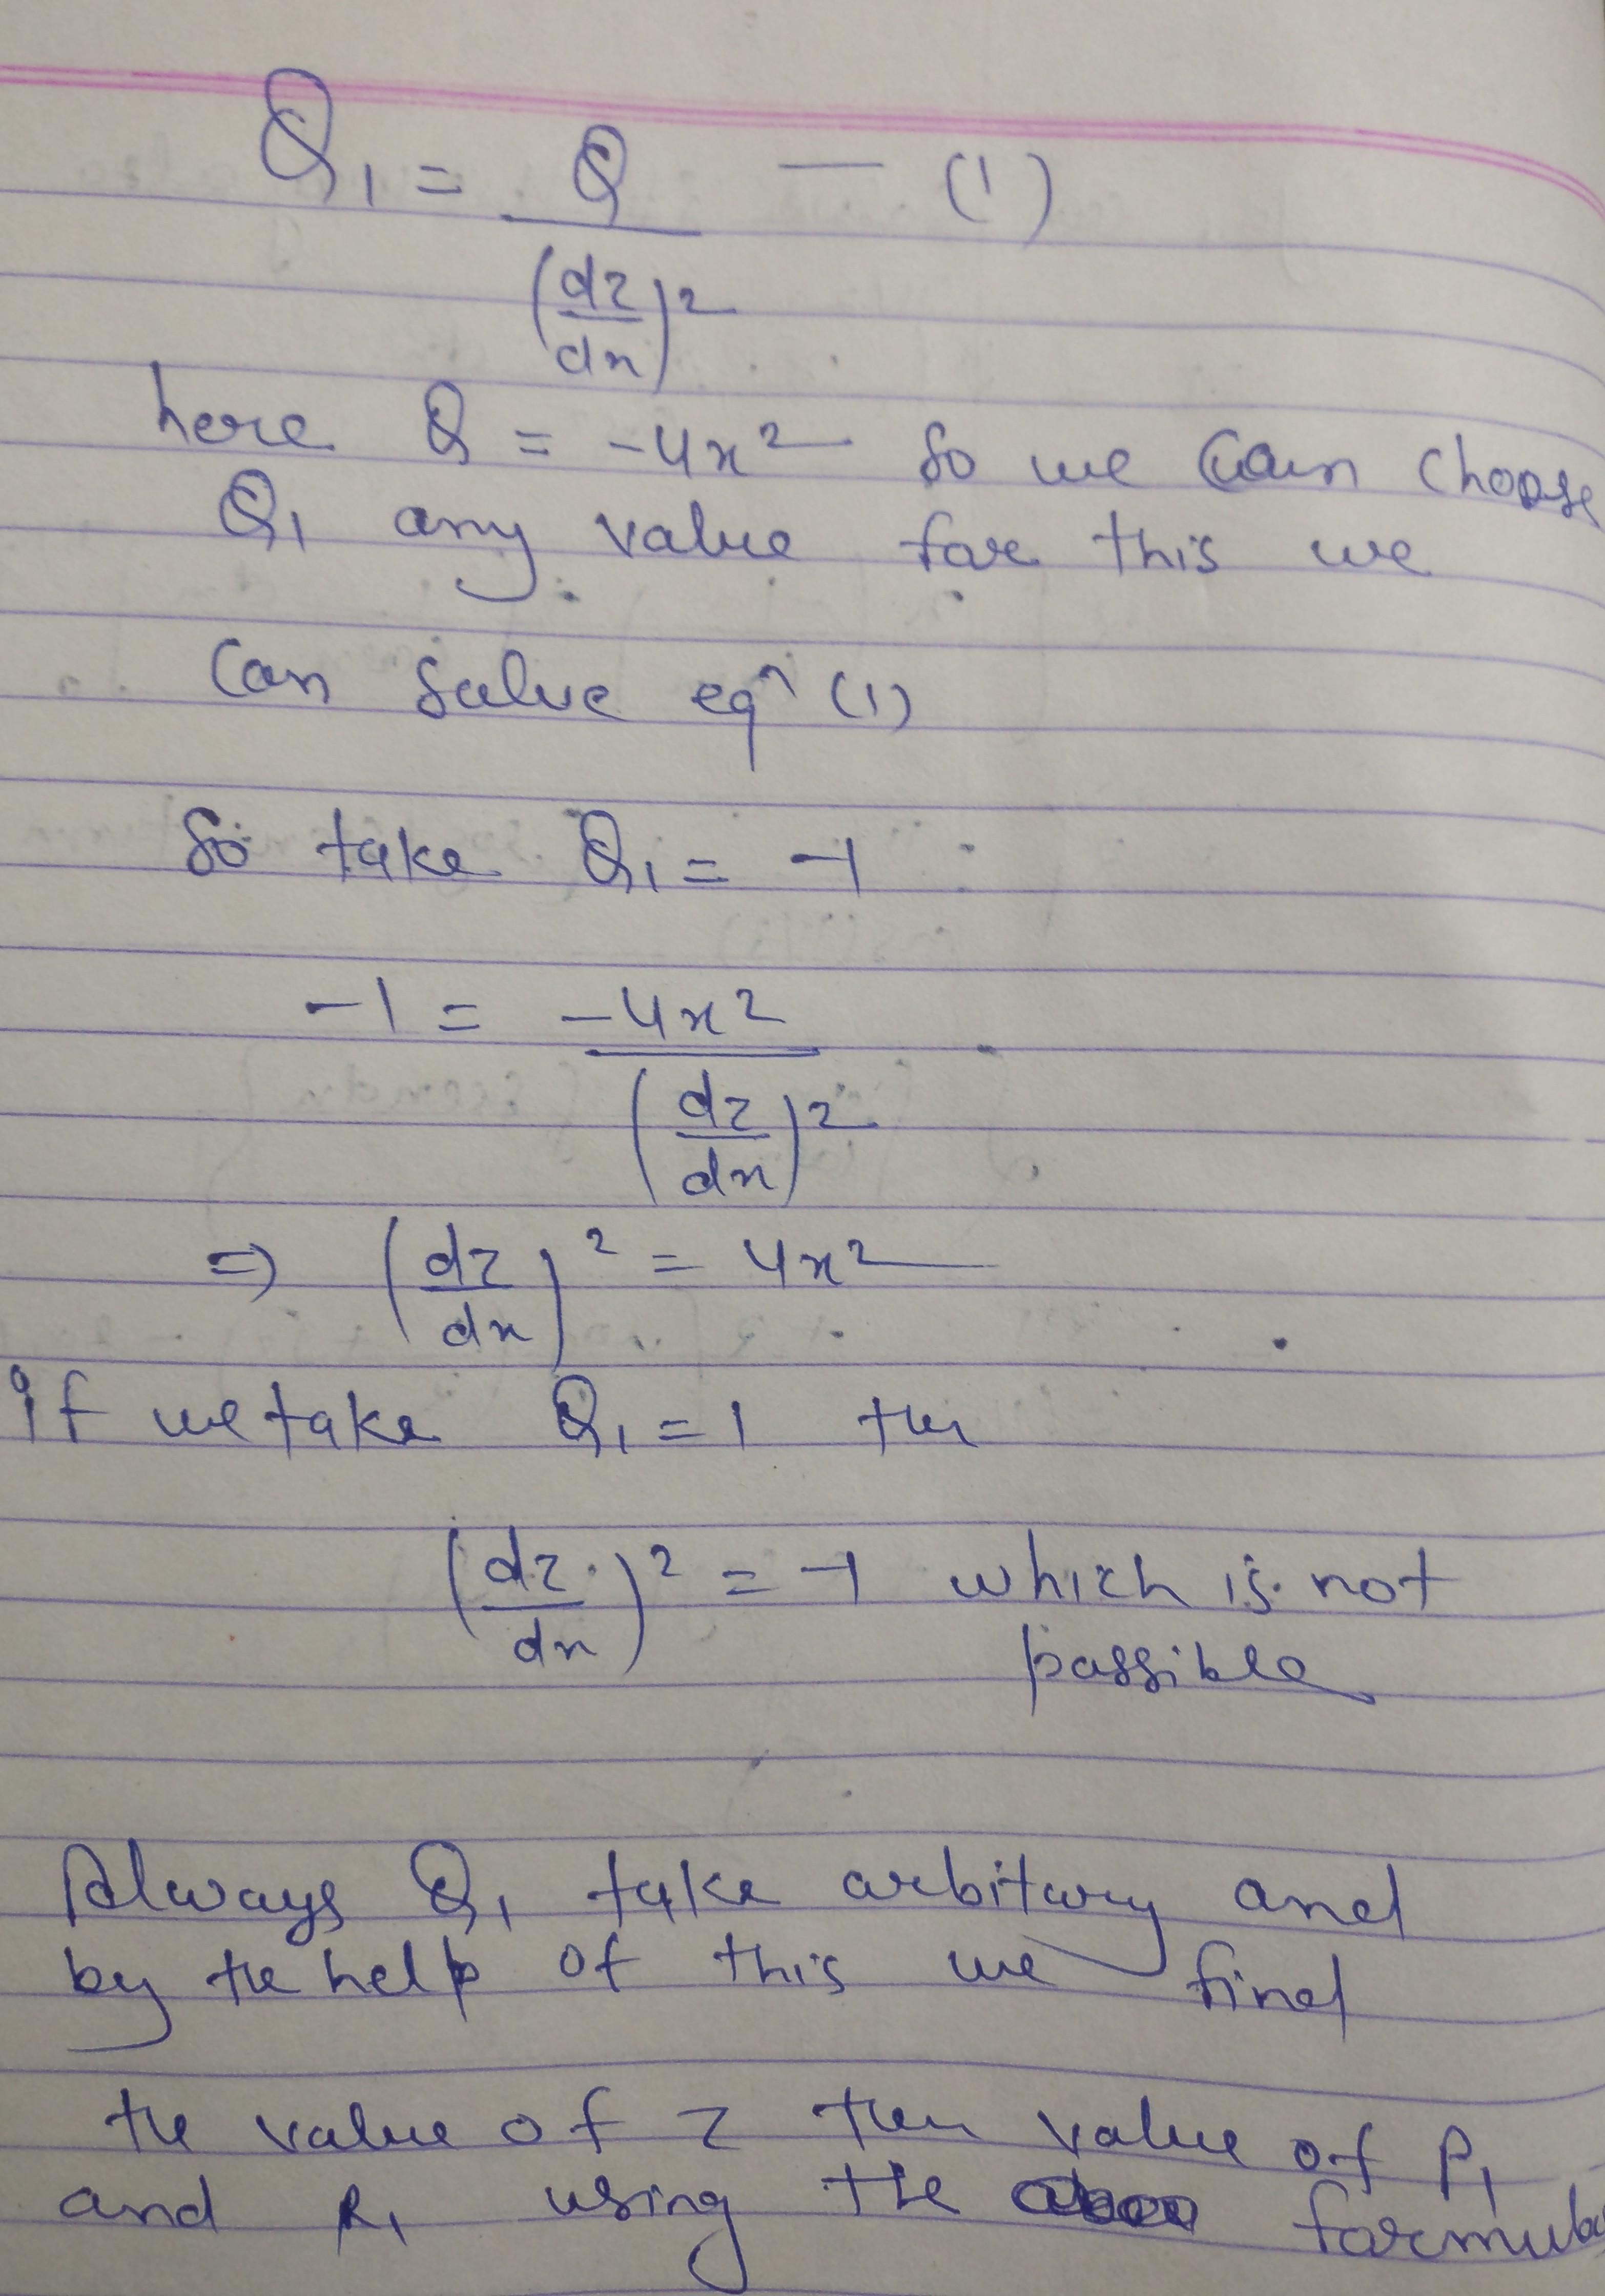 Q₁ = Q/(dz/dx)² — (1)
here Q = -4x² so we can choose
Q₁ any value for this we
can solve eqⁿ (1)
So take Q₁ = -1
-1 = -4x²/(dz/dx)²
⇒ (dz/dx)² = 4x²
if we take Q₁ = 1 then
(dz/dx)² = -1 which is not
possible
Always Q₁ take arbitary and
by the help of this we find
the value of z then value of P₁
and R₁ using the formula